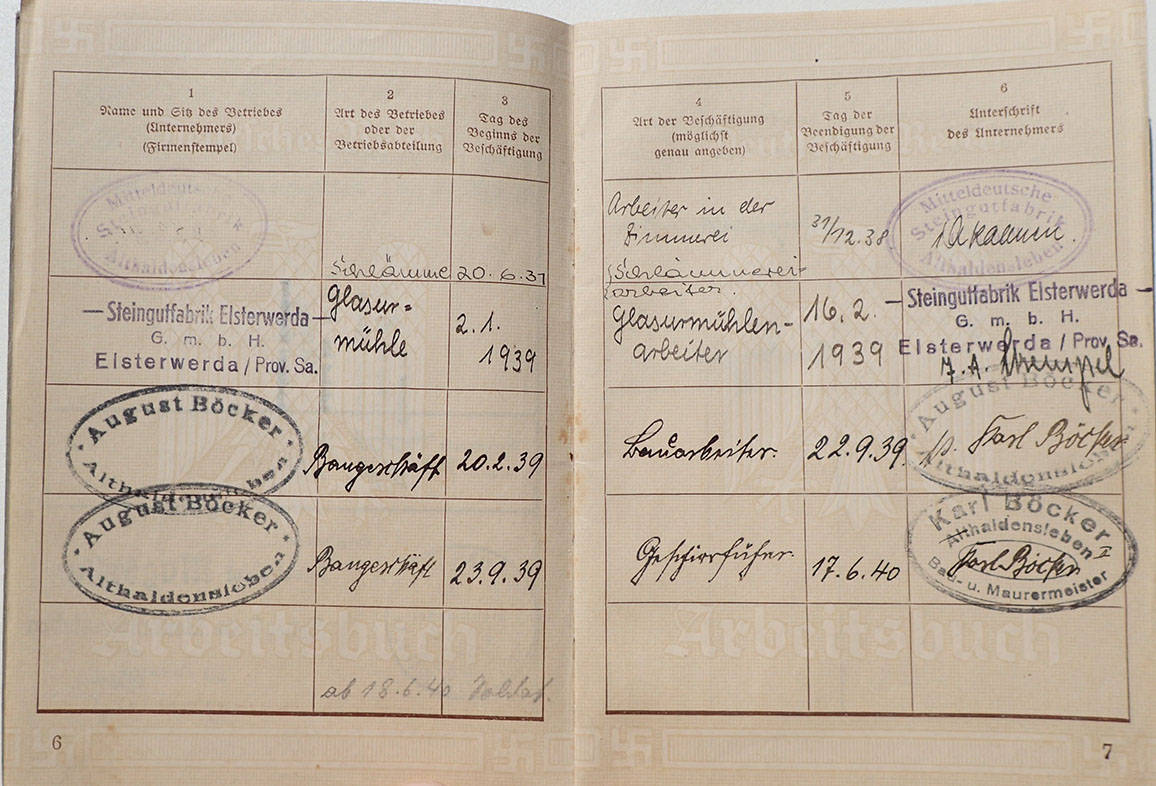 1
Name und Sitz des Betriebes
(Unternehmers)
(Firmenstempel)
2
Art des Betriebes
oder der
Betriebsabteilung
3
Tag des
Beginns der
Beschäftigung
Mitteldeutsche
Steingutfabrik
Althaldensleben
Schlämme 20.6.37
— Steingutfabrik Elsterwerda —
G. m. b. H.
Elsterwerda / Prov. Sa.
Glasur=
mühle
2.1.
1939
August Böcker
Althaldensleben
Baugeschäft 20.2.39
August Böcker
Althaldensleben
Baugeschäft 23.9.39
Arbeitsbuch
ab 18.6.40 Soldat.
6
4
Art der Beschäftigung
(möglichst
genau angeben)
5
Tag der
Beendigung der
Beschäftigung
6
Unterschrift
des Unternehmers
Arbeiter in der
Zimmerei
Schlämmerei-
arbeiter.
31/12.38
Mitteldeutsche
Steingutfabrik
Althaldensleben
Glasurmühlen-
arbeiter
16.2.
1939
— Steingutfabrik Elsterwerda —
G. m. b. H.
Elsterwerda / Prov. Sa.
Bauarbeiter. 22.9.39.
August Böcker
Althaldensleben
Karl Böcker
Geschirrführer. 17.6.40
Karl Böcker
Althaldensleben
Karl Böcker
Bau- u. Maurermeister
Arbeitsbuch
7